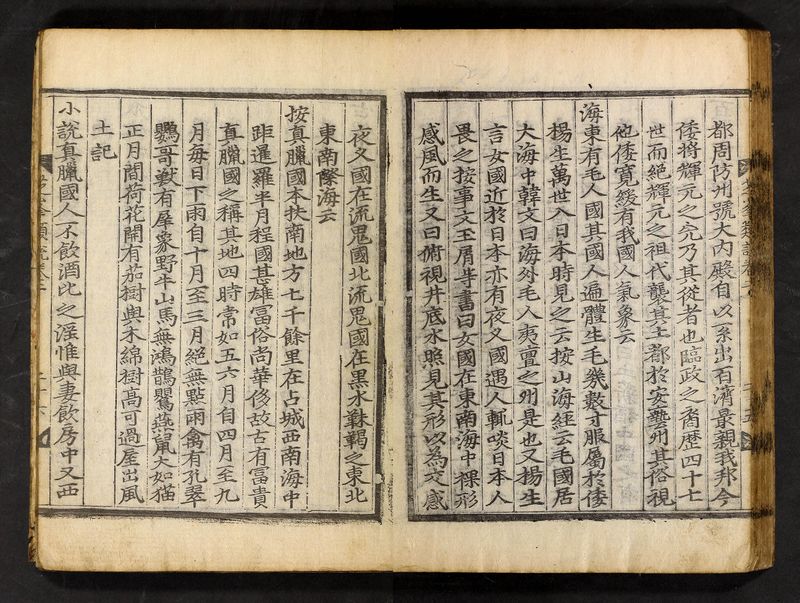 都周防州號大內殿自以系出百濟最親我邦今
倭將輝元之先乃其從者也臨政之酋歷四十七
世而絕輝元之祖代襲其土都於安藝州其俗視
他倭寬緩有我國人氣象云
海東有毛人國其國人遍體生毛幾數寸服屬於倭
楊生萬世入日本時見之云按山海經云毛國居
大海中韓文曰海外毛人夷亶之州是也又楊生
言女國近於日本亦有夜叉國遇人輒啖日本人
畏之按事文玉屑書曰女國在東南海中裸形
感風而生又曰俯視井底水照見其形以為交感
夜叉國在流鬼國北流鬼國在黑水靺鞨之東北
東南際海云
按真臘國本扶南地方七千餘里在占城西南海中
距暹羅半月程國甚雄富俗尚華侈故古有富貴
真臘國之稱其地四時常如五六月自四月至九
月每日下雨自十月至三月絕無點雨禽有孔翠
鸚哥獸有犀象野牛山馬無鴻鵲鸎燕鼠大如猫
正月間荷花開有茄樹與木綿樹高可過屋出風
土記
小說真臘國人不飲酒比之淫惟與妻飲房中又西